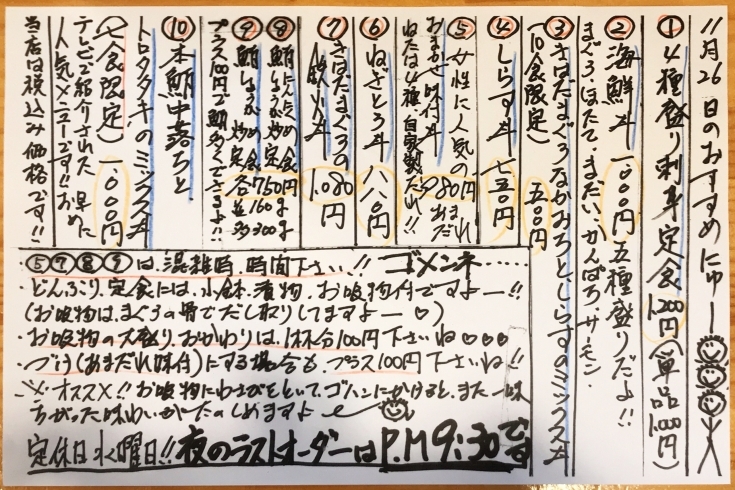 11月26日のおすすめにゅー
①4種盛り刺身定食1,200円(単品1,000円)
②海鮮丼1,000円 五種盛りだよ!!
まぐろ・ほたて・まだい・かんぱち・サーモン・
③きはだまぐろなかおちとしらすのミックス丼
(10食限定) 500円
④しらす丼 730円
⑤女性に人気の円
おまかせ味付丼980あまだ
ねたは4種 自家製だれ!!
⑥ねぎとろ丼 880円
⑦きはだまぐろの
1,080円
⑧鮪にんにく炒め定食
⑨鮪しょうが炒め定食 各750円
並160g
多300g
プラス100円で鮪多くできるよ!!
⑩本鮪中落ちと
トロタタキのミックス丼
(七食限定) 1,000円
テレビで紹介された 早めに
人気メニューです!! お
当店は税込み価格です!!
⑤⑦⑧⑨は、混雑時、時間下さい!! ゴメンネ……
・どんぶり、定食には、小鉢、漬物、お吸物付ですよー!!
(お吸物は、まぐろの骨でだし取りしてますよー♡)
・お吸物の大盛り、おかわりは、1杯分100円下さいね♡♡♡
・づけ(あまだれ味付)にする場合も、プラス100円下さいね!!
・※オススメ!! お吸物にわさびをといて、ゴハンにかけると、また一味
ちがった味わいがたのしめますよ
定休日水曜日!! 夜のラストオーダーはP.M9:30です